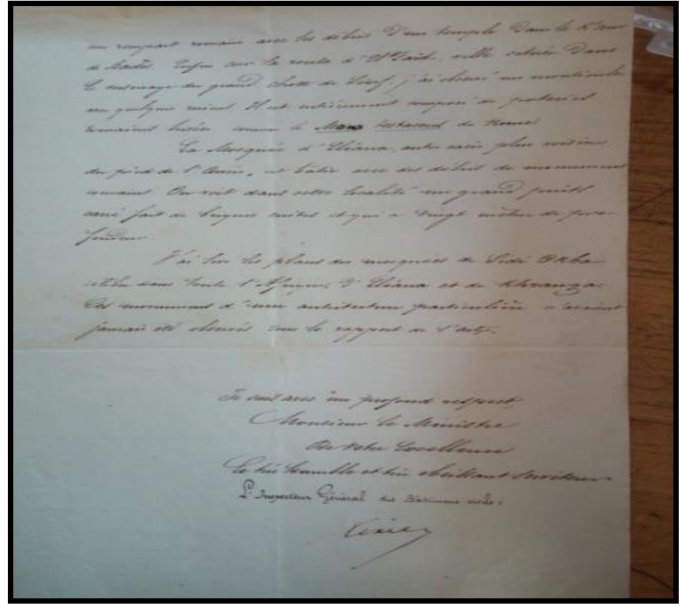 un rempart romain avec les débris d'un temple dans le K'sour
de Badès. Enfin sur la route d' , ville située dans
le voisinage du grand chotte de Souf, j'ai observé un monticule
en quelque sorte. Il est entièrement composé de poteries
romaines brisées comme le Mont testaceus de Rome.
La Mosquée d'Eliana, autre oasis plus voisine
du pied de l'Aurès, est bâtie avec des débris de monuments
romains. On voit dans cette localité un grand puits
carré fait de briques cuites et qui a vingt mètres de pro-
fondeur.
J'ai les plans des mosquées de Sidi Okba
dans toute l'Afrique, d'Eliana et de Khranga.
Ces monuments d'une architecture particulière n'avaient
jamais été observés sous le rapport de l'art.
Je suis avec un profond respect
Monsieur le Ministre
De votre Excellence
Le très humble et très obéissant serviteur
L'Inspecteur Général des Bâtiments civils.